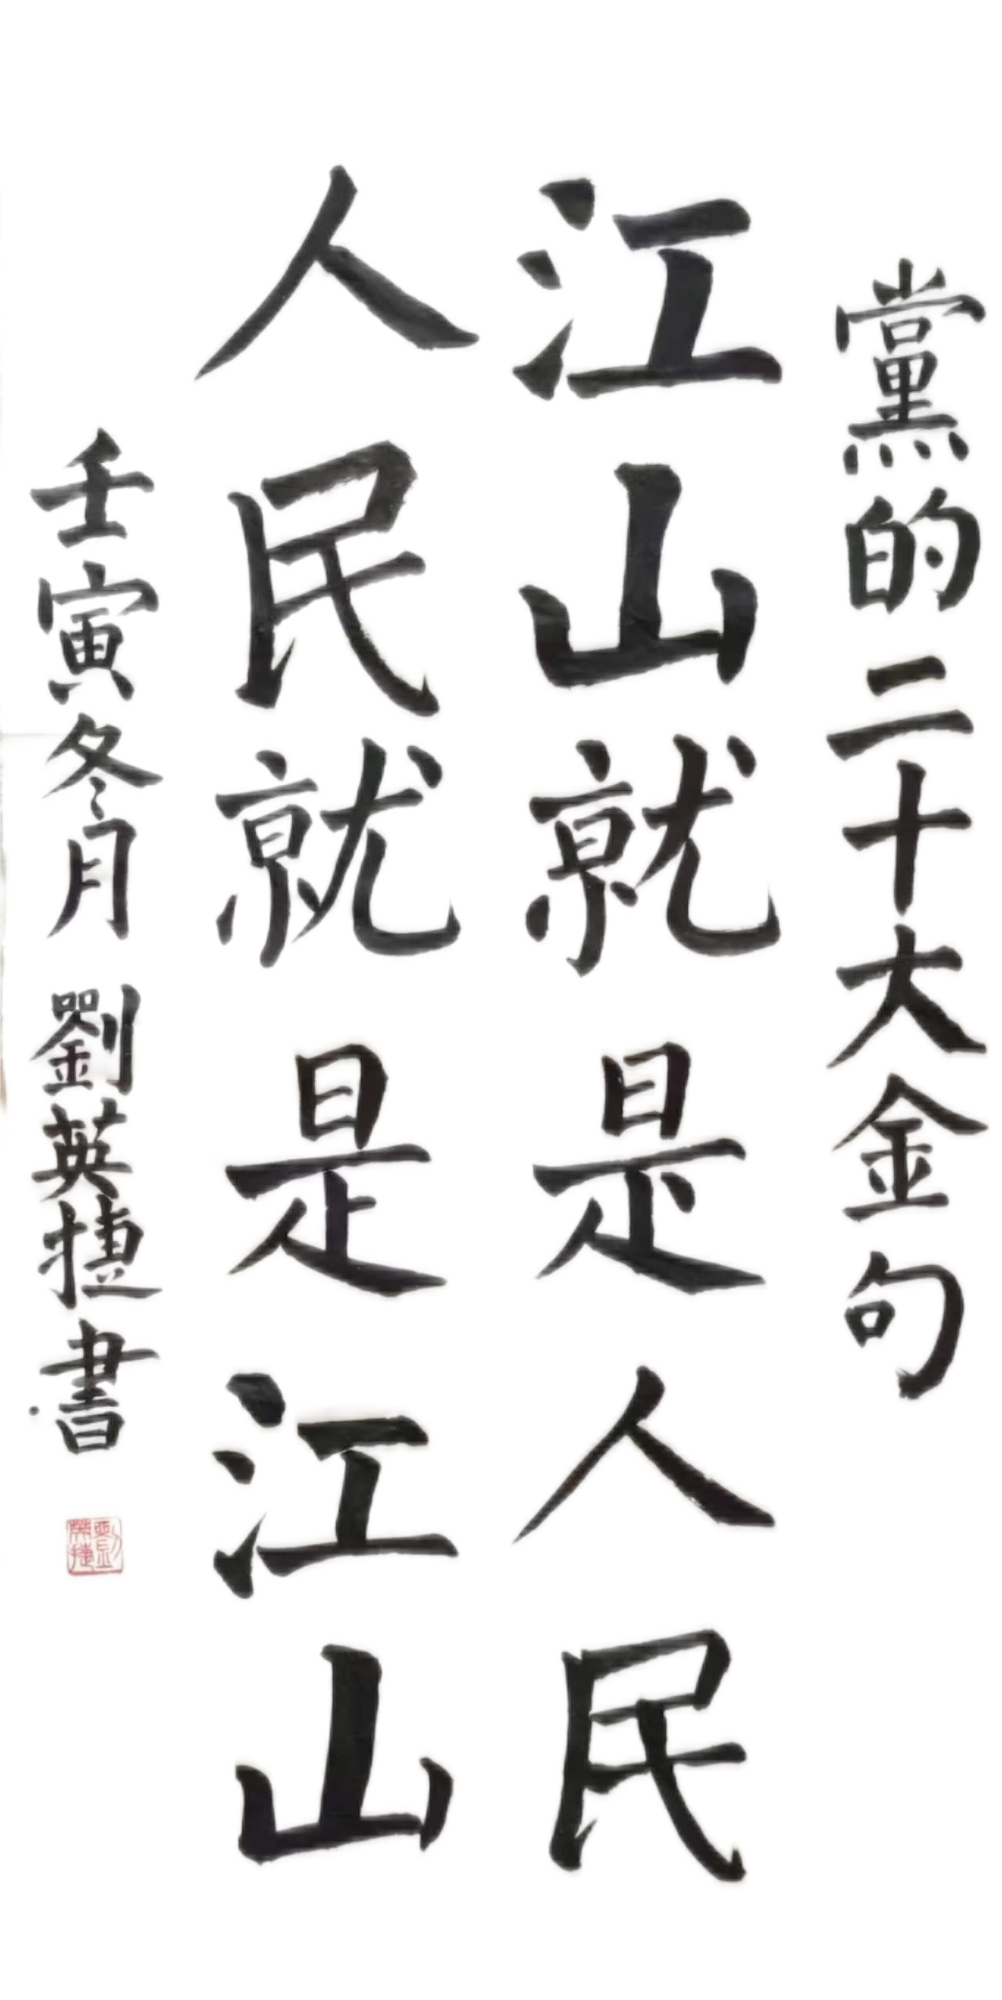 黨的二十大金句
江山就是人民
人民就是江山
壬寅冬月 劉英捷書